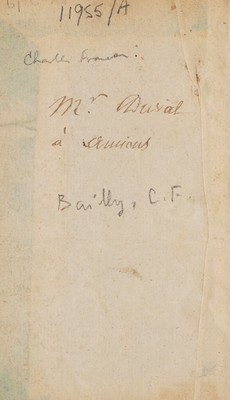 11955/A
Charles François:
Mr Duval
à Amiens
Bailly, C. F.